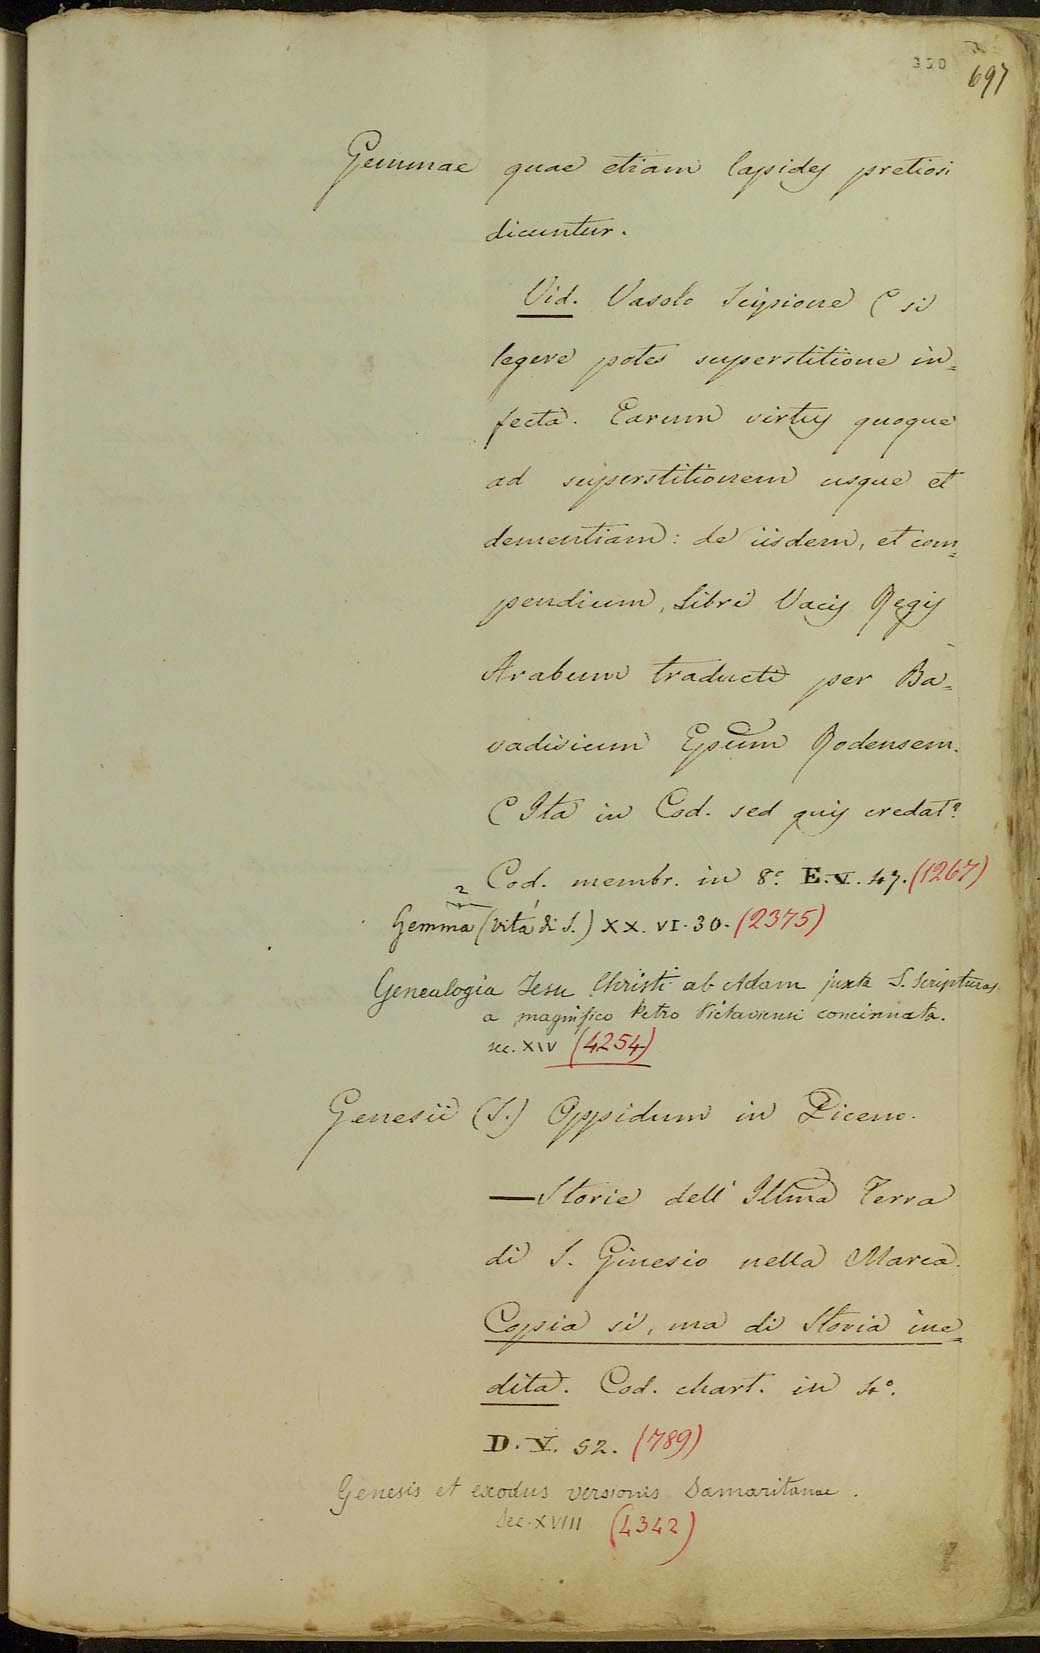 350
697
Gemmae quae etiam lapides pretiosi
dicuntur.
Vid. Vasolo Scipione ( si
legere potes superstitione in=
fecta. Earum virtus quoque
ad superstitionem usque et
dementiam: de iisdem, et com=
pendium, Libri Vacis Regis
Arabum traducti per Ba=
vadivicum Epūm Rodensem.
( Ita in Cod. sed quis credat?
Cod. membr. in 8.° E. V. 47. (1267)
Gemma (vita di S.) XX. VI. 30. (2375)
Genealogia Jesu Christi ab Adam juxta S. Scripturas
a magnifico Petro Pictaviensi concinnata.
sec. XIV (4254)
Genesii (S.) Oppidum in Piceno.
— Storie dell' Illma Terra
di S. Ginesio nella Marca.
Copia si, ma di Storia ine=
dita. Cod. chart. in 4°.
D. V. 52. (789)
Genesis et exodus versionis Samaritanae.
Sec. XVIII (4342)